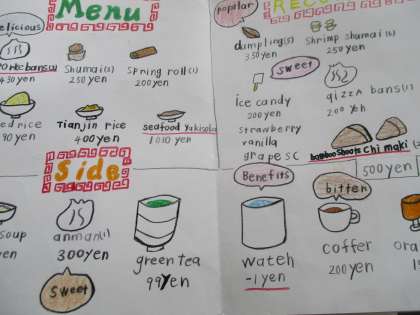 Menu
elicious
Shumai(1)
250yen
Spring roll(1)
200yen
430yen
ed rice
90yen
Tianjin rice
400yen
seafood yakisoba
1010yen
Side
soup
yen
anman(1)
300yen
sweet
green tea
99yen
popular
REC
dumpling(s)
350yen
Shrimp shumai(1)
250yen
sweet
ice candy
200yen
strawberry
vanilla
grapes C
bans(1)
200yen
bamboo shoots chimaki (2
500yen
Benefits
wateh
-1yen
bitten
coffer
200yen
ora